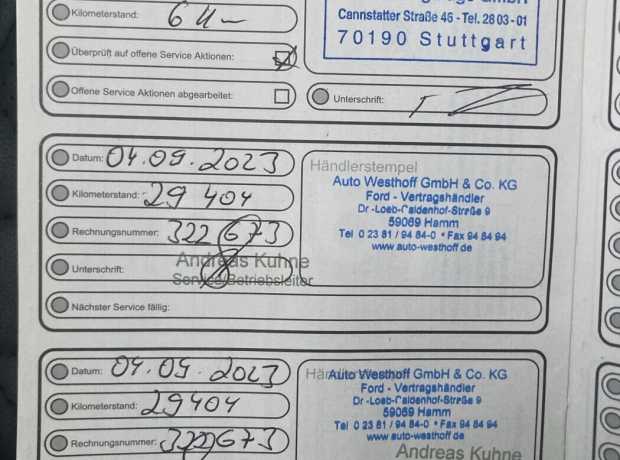 Kilometerstand: 6 km
Cannstatter Straße 46 - Tel. 28 03-01
70190 Stuttgart
Überprüft auf offene Service Aktionen:
Offene Service Aktionen abgearbeitet:
Unterschrift:
Datum: 04.09.2023
Kilometerstand: 29 404
Rechnungsnummer: 322673
Unterschrift:
Andreas Kuhne
Service/Betriebsleiter
Nächster Service fällig:
Händlerstempel
Auto Westhoff GmbH & Co. KG
Ford - Vertragshändler
Dr.-Loeb-Caldenhof-Straße 9
59069 Hamm
Tel 0 23 81 / 94 84-0 * Fax 94 84 94
www.auto-westhoff.de
Datum: 04.09.2023
Kilometerstand: 29404
Rechnungsnummer: 322673
Auto Westhoff GmbH & Co. KG
Ford - Vertragshändler
Dr.-Loeb-Caldenhof-Straße 9
59069 Hamm
Tel 0 23 81 / 94 84-0 * Fax 94 84 94
www.auto-westhoff.de
Andreas Kuhne